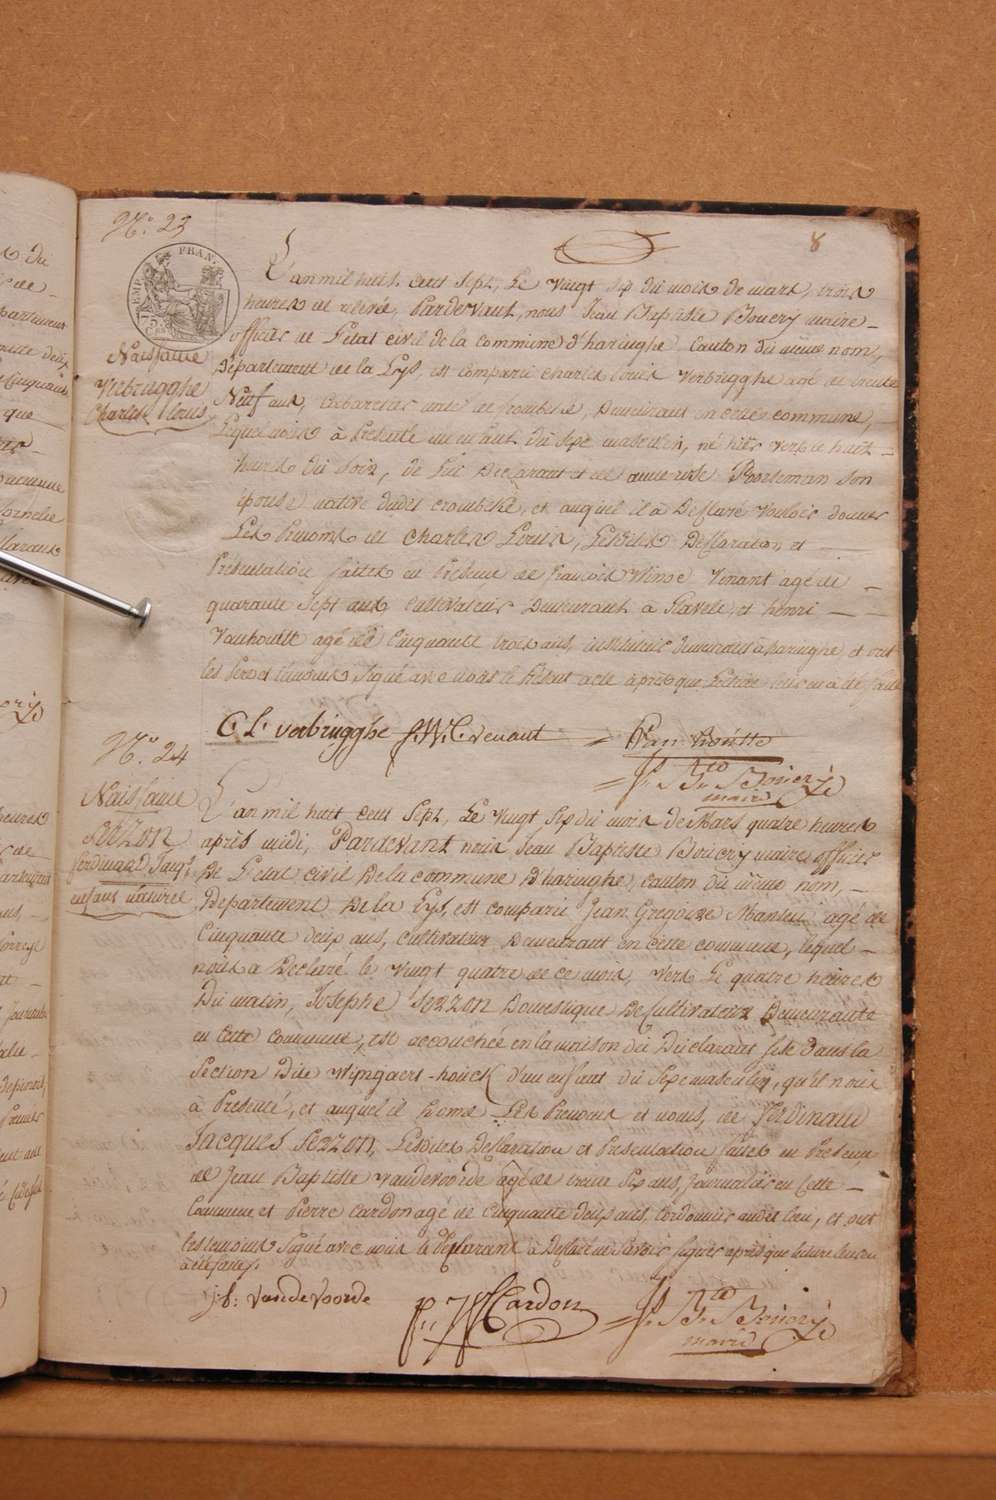 8
N.º 23
TIMB. EMP. FRAN.
Naissance
Verbrugghe
Charles Louis
L'an mil huit cent sept, Le vingt six du mois de mars, trois
heures de relevée, Pardevant, nous Jean Baptiste Bouery maire
officier de L'etat civil de la commune d'haringhe Canton du même nom,
Département de la Lys, est comparu Charles Louis Verbrugghe agé de trente
Neuf ans, Cabaretier natif de Crombeke, Demeurant en cette commune,
Lequel nous à Présenté un enfant du sexe masculin, né hier vers le huit
heures du soir, de lui Declarant et de anne Rooseman son
épouse native dudit Crombeke, et auquel il à Déclaré Vouloir donner
Les Prenoms de Charles Louis, Lesdites Declaration et
Présentation faites en Présence de François Winoc Venant agé de
quarante Sept ans Cultivateur Demeurant à Stavele, et henri
Vanhoutte agé de Cinquante trois ans, instituteur demeurant à haringhe et ont
les Pere et témoins Signé avec nous le Présent acte après que Lecture leur en a été faite
C. L. Verbrugghe f. W. C. venant Van Houtte
J. Bte Bouery
maire
N.º 24
Naissance
Senzon
Ferdinand Jacqs
enfant naturel
L'an mil huit cent Sept, Le vingt Six du mois de Mars quatre heures
après midi, Pardevant nous Jean Baptiste Bouery maire officier
De L'etat civil De la commune D'haringhe, canton du même nom,
Département De la Lys, est comparu Jean Gregoire Manseu agé de
Cinquante deux ans, cultivateur Demeurant en cette commune, lequel
nous a Declaré le vingt quatre de ce mois, vers le quatre heures
Du matin, Josephe Senzon Domestique De Cultivateur Demeurante
en Cette commune, est accouchée en la maison du Déclarant sise Dans la
Section Dite Wyngaert-houck d'un enfant du sexe masculin, qu'il nous
à Présenté, et auquel il Donne Les Prenoms et noms, de Ferdinand
Jacques Senzon, Lesdites Declaration et Présentation faites en Présence
de Jean Baptiste Vandevoorde agé de trente Six ans, Journalier en Cette
Commune et Pierre Cardon agé de Cinquante deux ans, Cordonnier audit lieu, et ont
les temoins Signé avec nous le Déclarant à Declaré ne Savoir Signer après que lecture leur en
à été faite.
j. b. vandevoorde P. J. Cardon J. Bte Bouery
maire